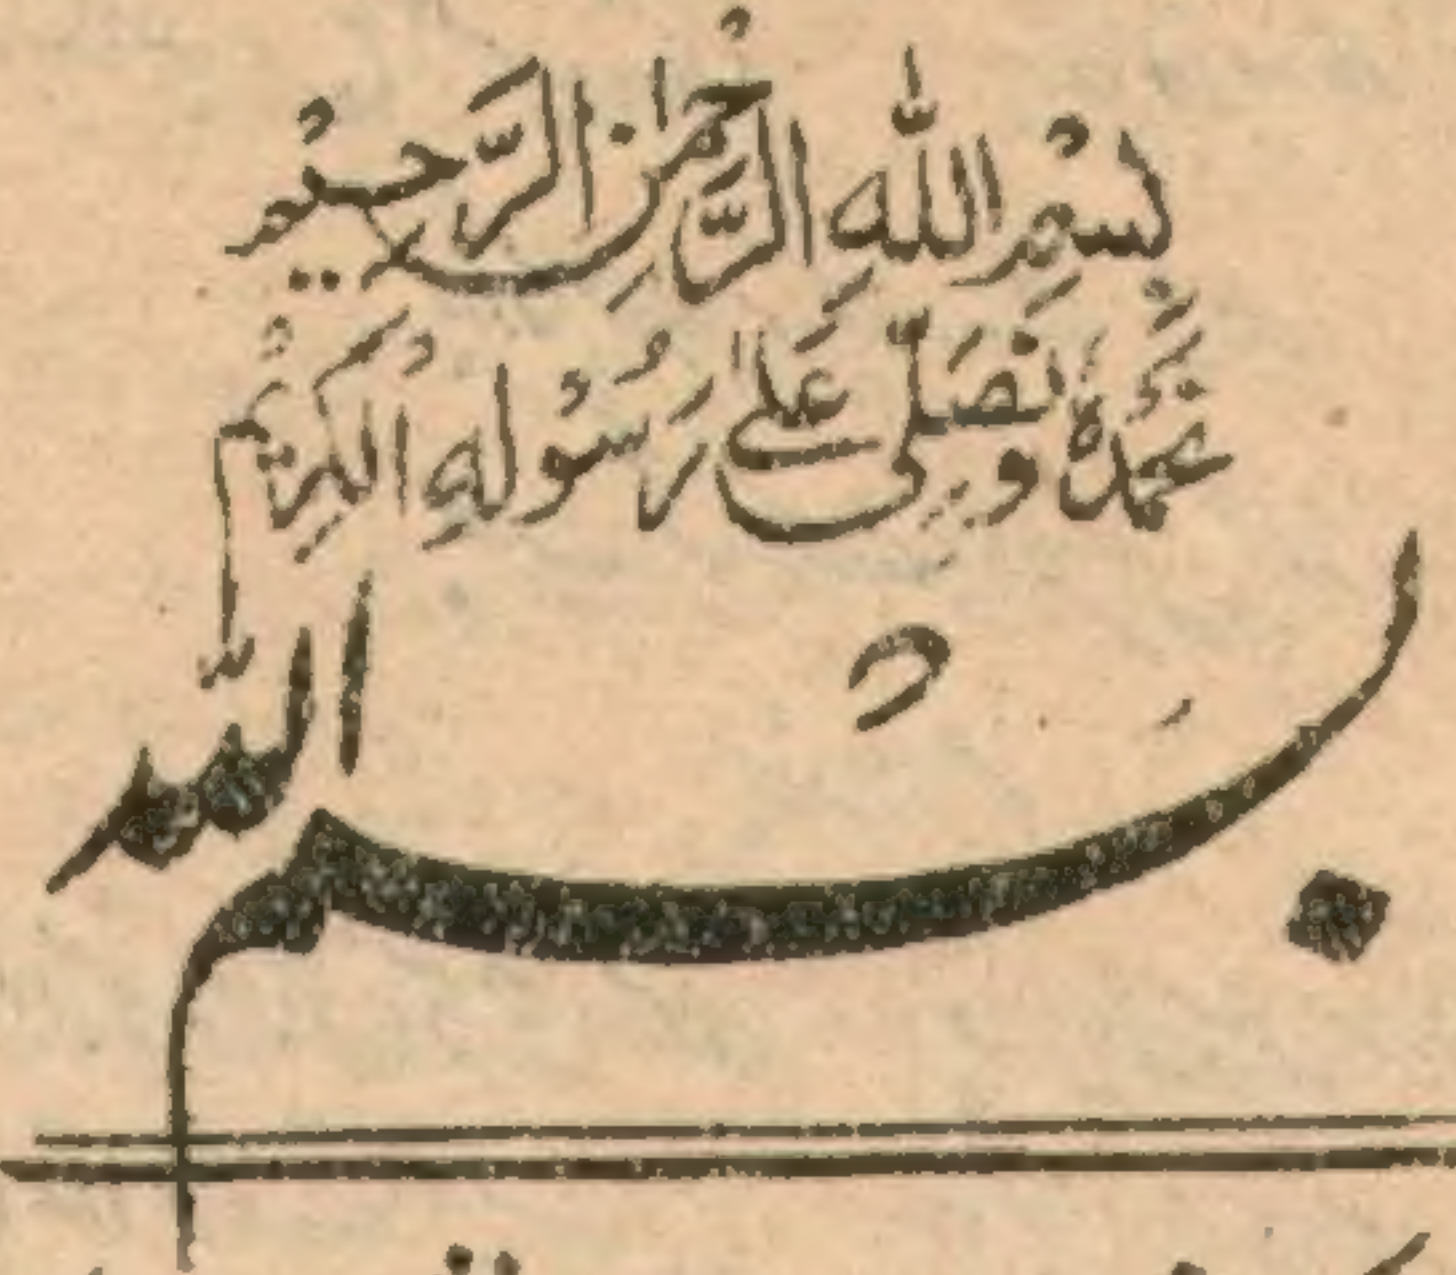 بِسْمِ اللّٰهِ الرَّحْمٰنِ الرَّحِيْمِ
نَحْمَدُهٗ وَنُصَلِّىْ عَلٰى رَسُوْلِهِ الْكَرِيْمِ
بسم اللّٰه